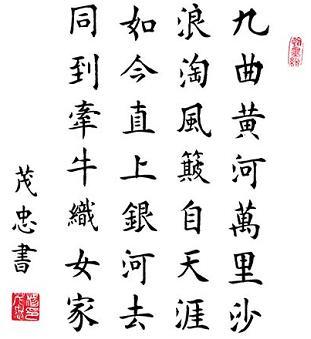 九曲黄河萬里沙
浪淘風簸自天涯
如今直上銀河去
同到牽牛織女家
茂忠書